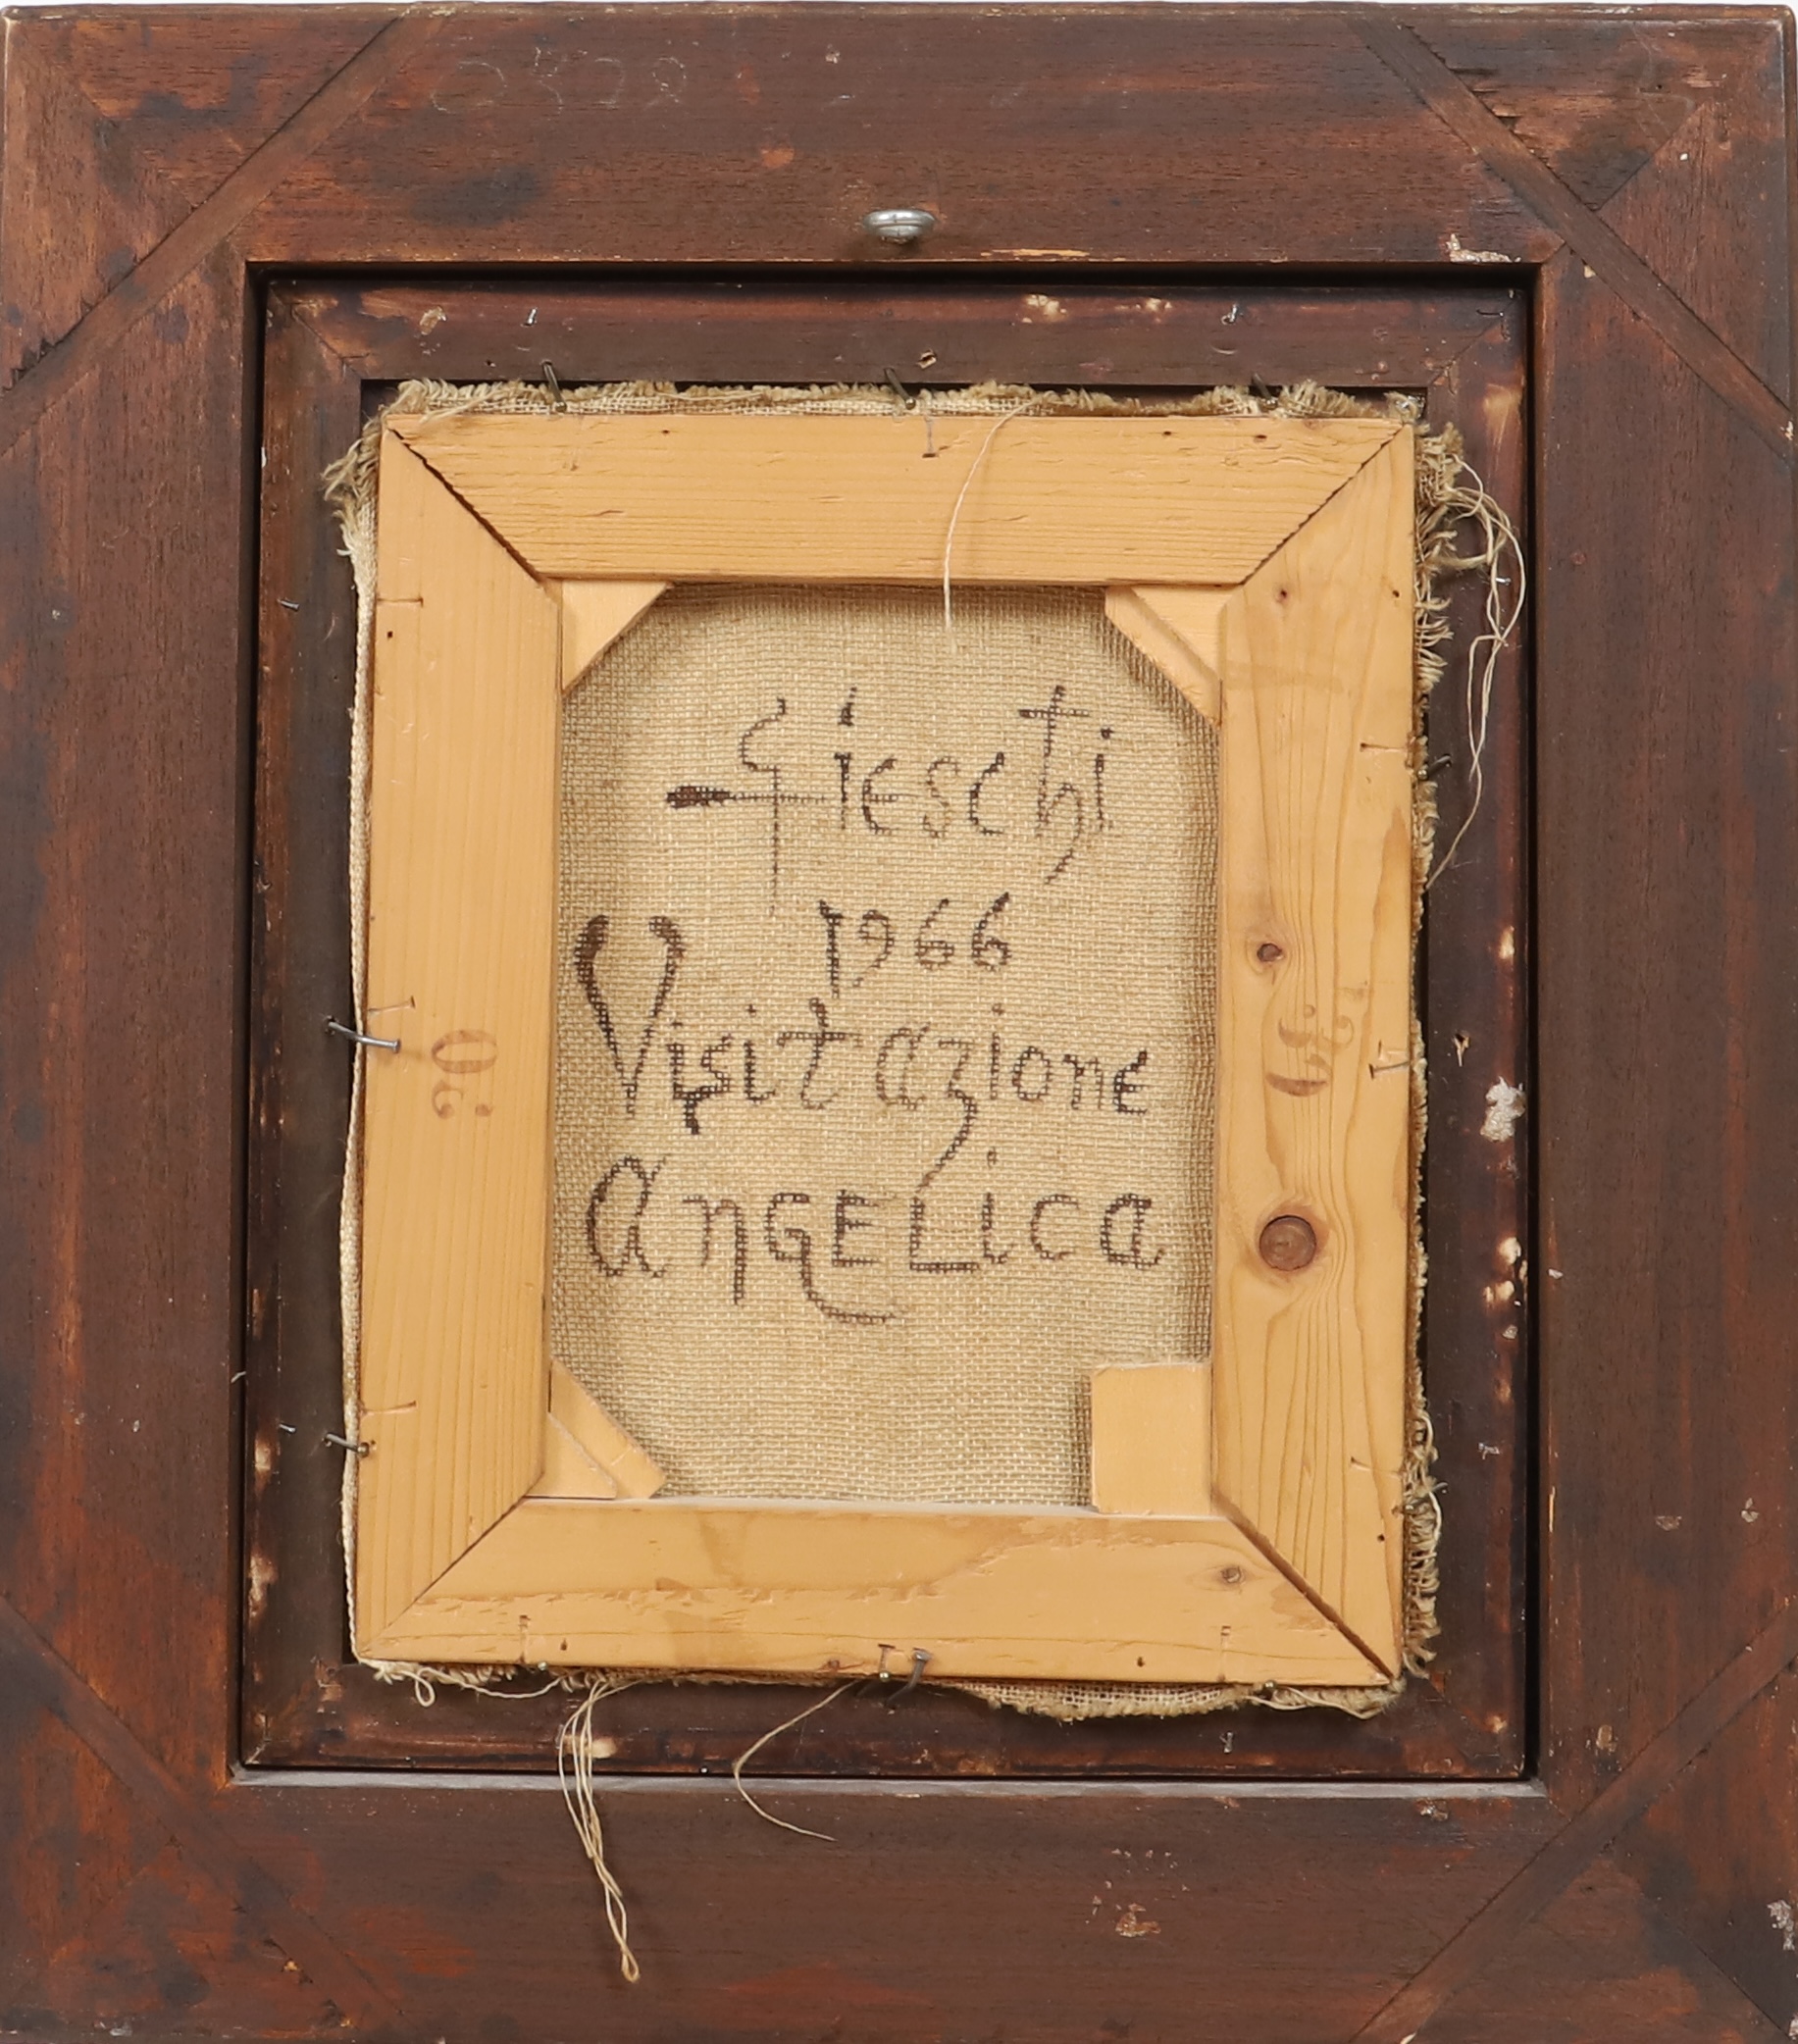 fieschi
1966
Visitazione
angelica
30